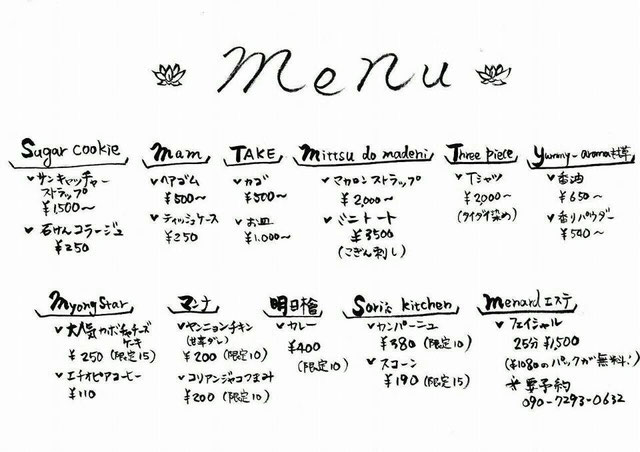 Menu
Sugar cookie
サンキャッチャー
ストラップ
¥1,500〜
石けんコラージュ
¥250
Mam
ヘアゴム
¥500〜
ティッシュケース
¥250
TAKE
カゴ
¥500〜
お皿
¥1,000〜
Mittsu do maderi
マカロンストラップ
¥2,000〜
ミニトート
¥3500
(こぎん刺し)
Three piece
Tシャツ
¥2,000〜
(タイダイ染め)
Yummy-aroma
香油
¥650〜
香りパウダー
¥540〜
Myong Star
大人気カボチャチーズ
ケーキ
¥250 (限定15)
エチオピアコーヒー
¥110
マンナ
ヤンニョンチキン
(甘辛ダレ)
¥200 (限定10)
コリアンジャコつまみ
¥200 (限定10)
明日檜
カレー
¥400
(限定10)
Sori's kitchen
カンパーニュ
¥380 (限定10)
スコーン
¥190 (限定15)
Menard エステ
フェイシャル
25分 ¥1,500
(¥1080のパックが無料!)
※要予約
090-7293-0632